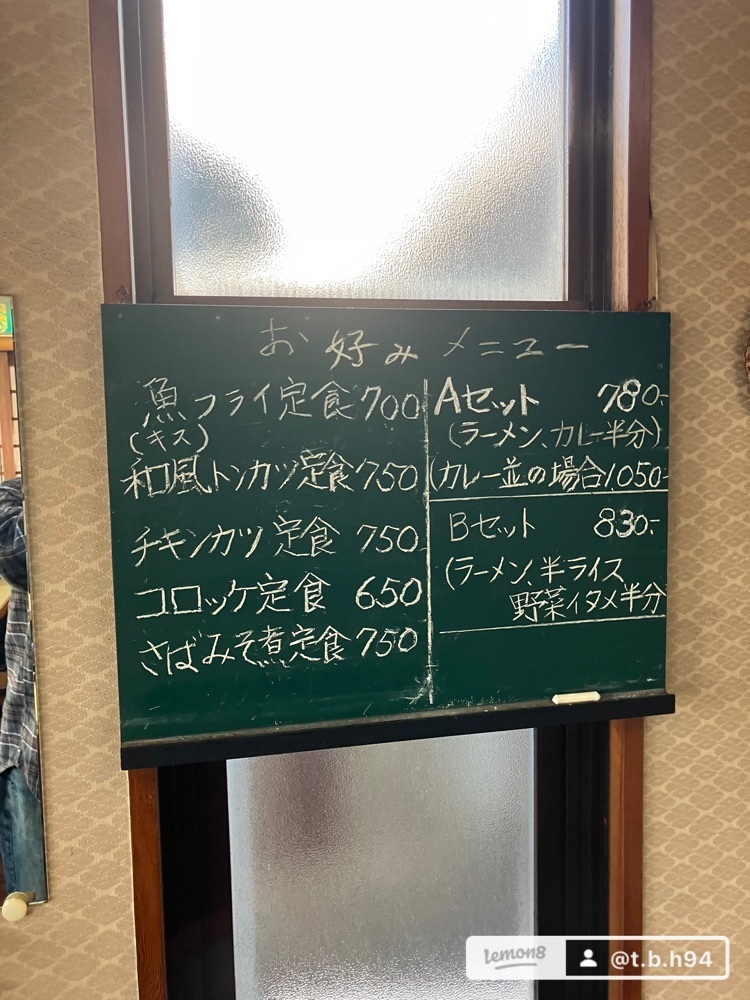 お好みメニュー
魚フライ定食700
(キス)
和風トンカツ定食750
チキンカツ定食750
コロッケ定食650
さばみそ煮定食750
Aセット 780-
(ラーメン、カレー半分)
(カレー並の場合1,050-
Bセット 830-
(ラーメン、半ライス
野菜イタメ半分
lemon8 @t.b.h94